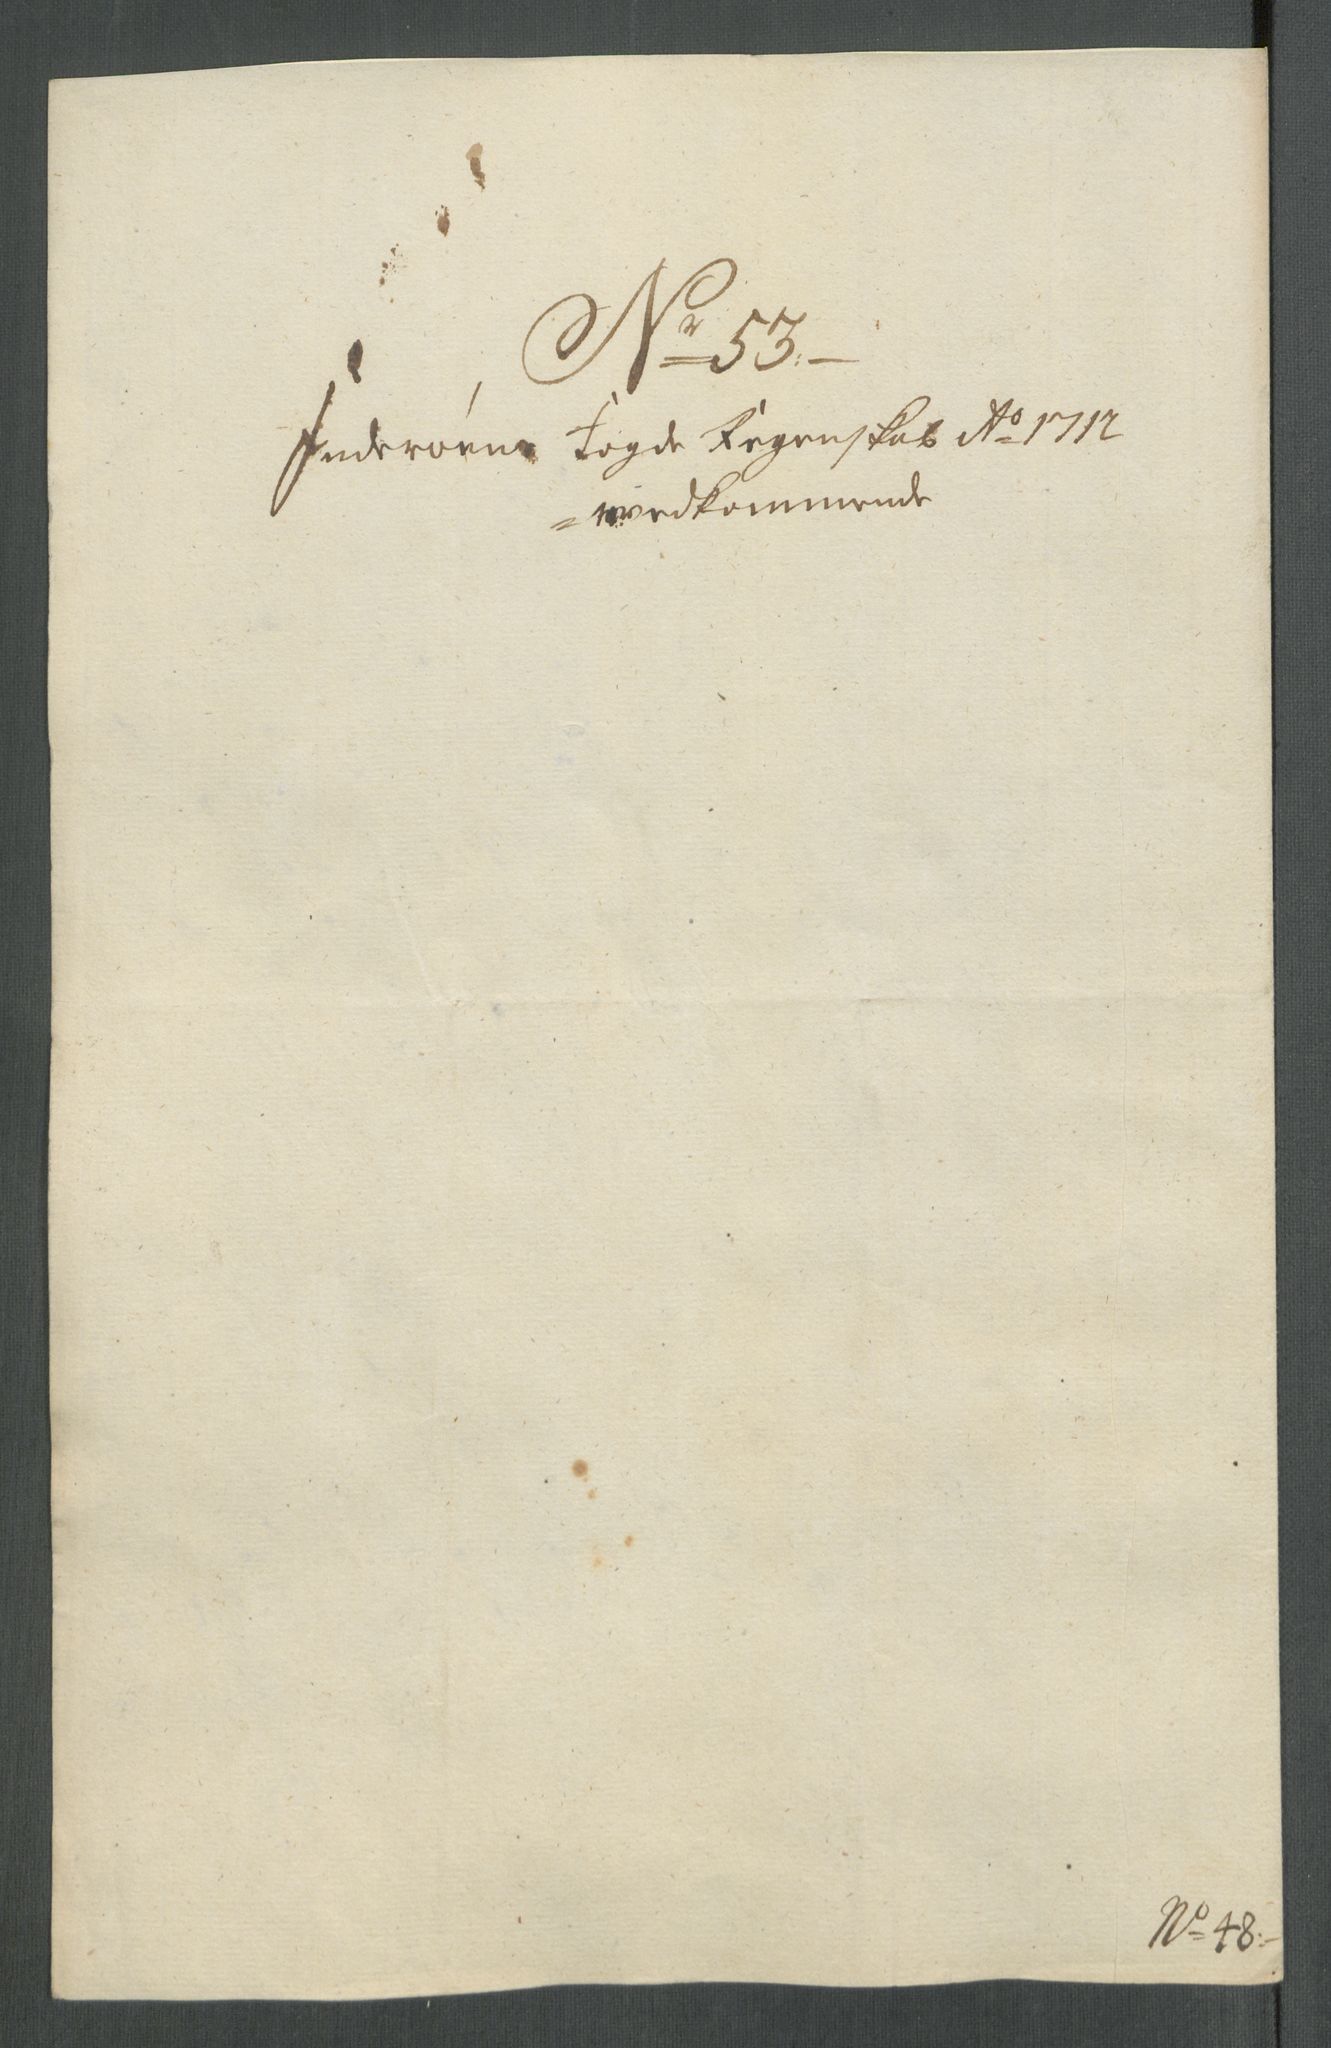 Nr 53.
Inderöens fogde Regenskab Ao 1712
= wedkommende
No 48.